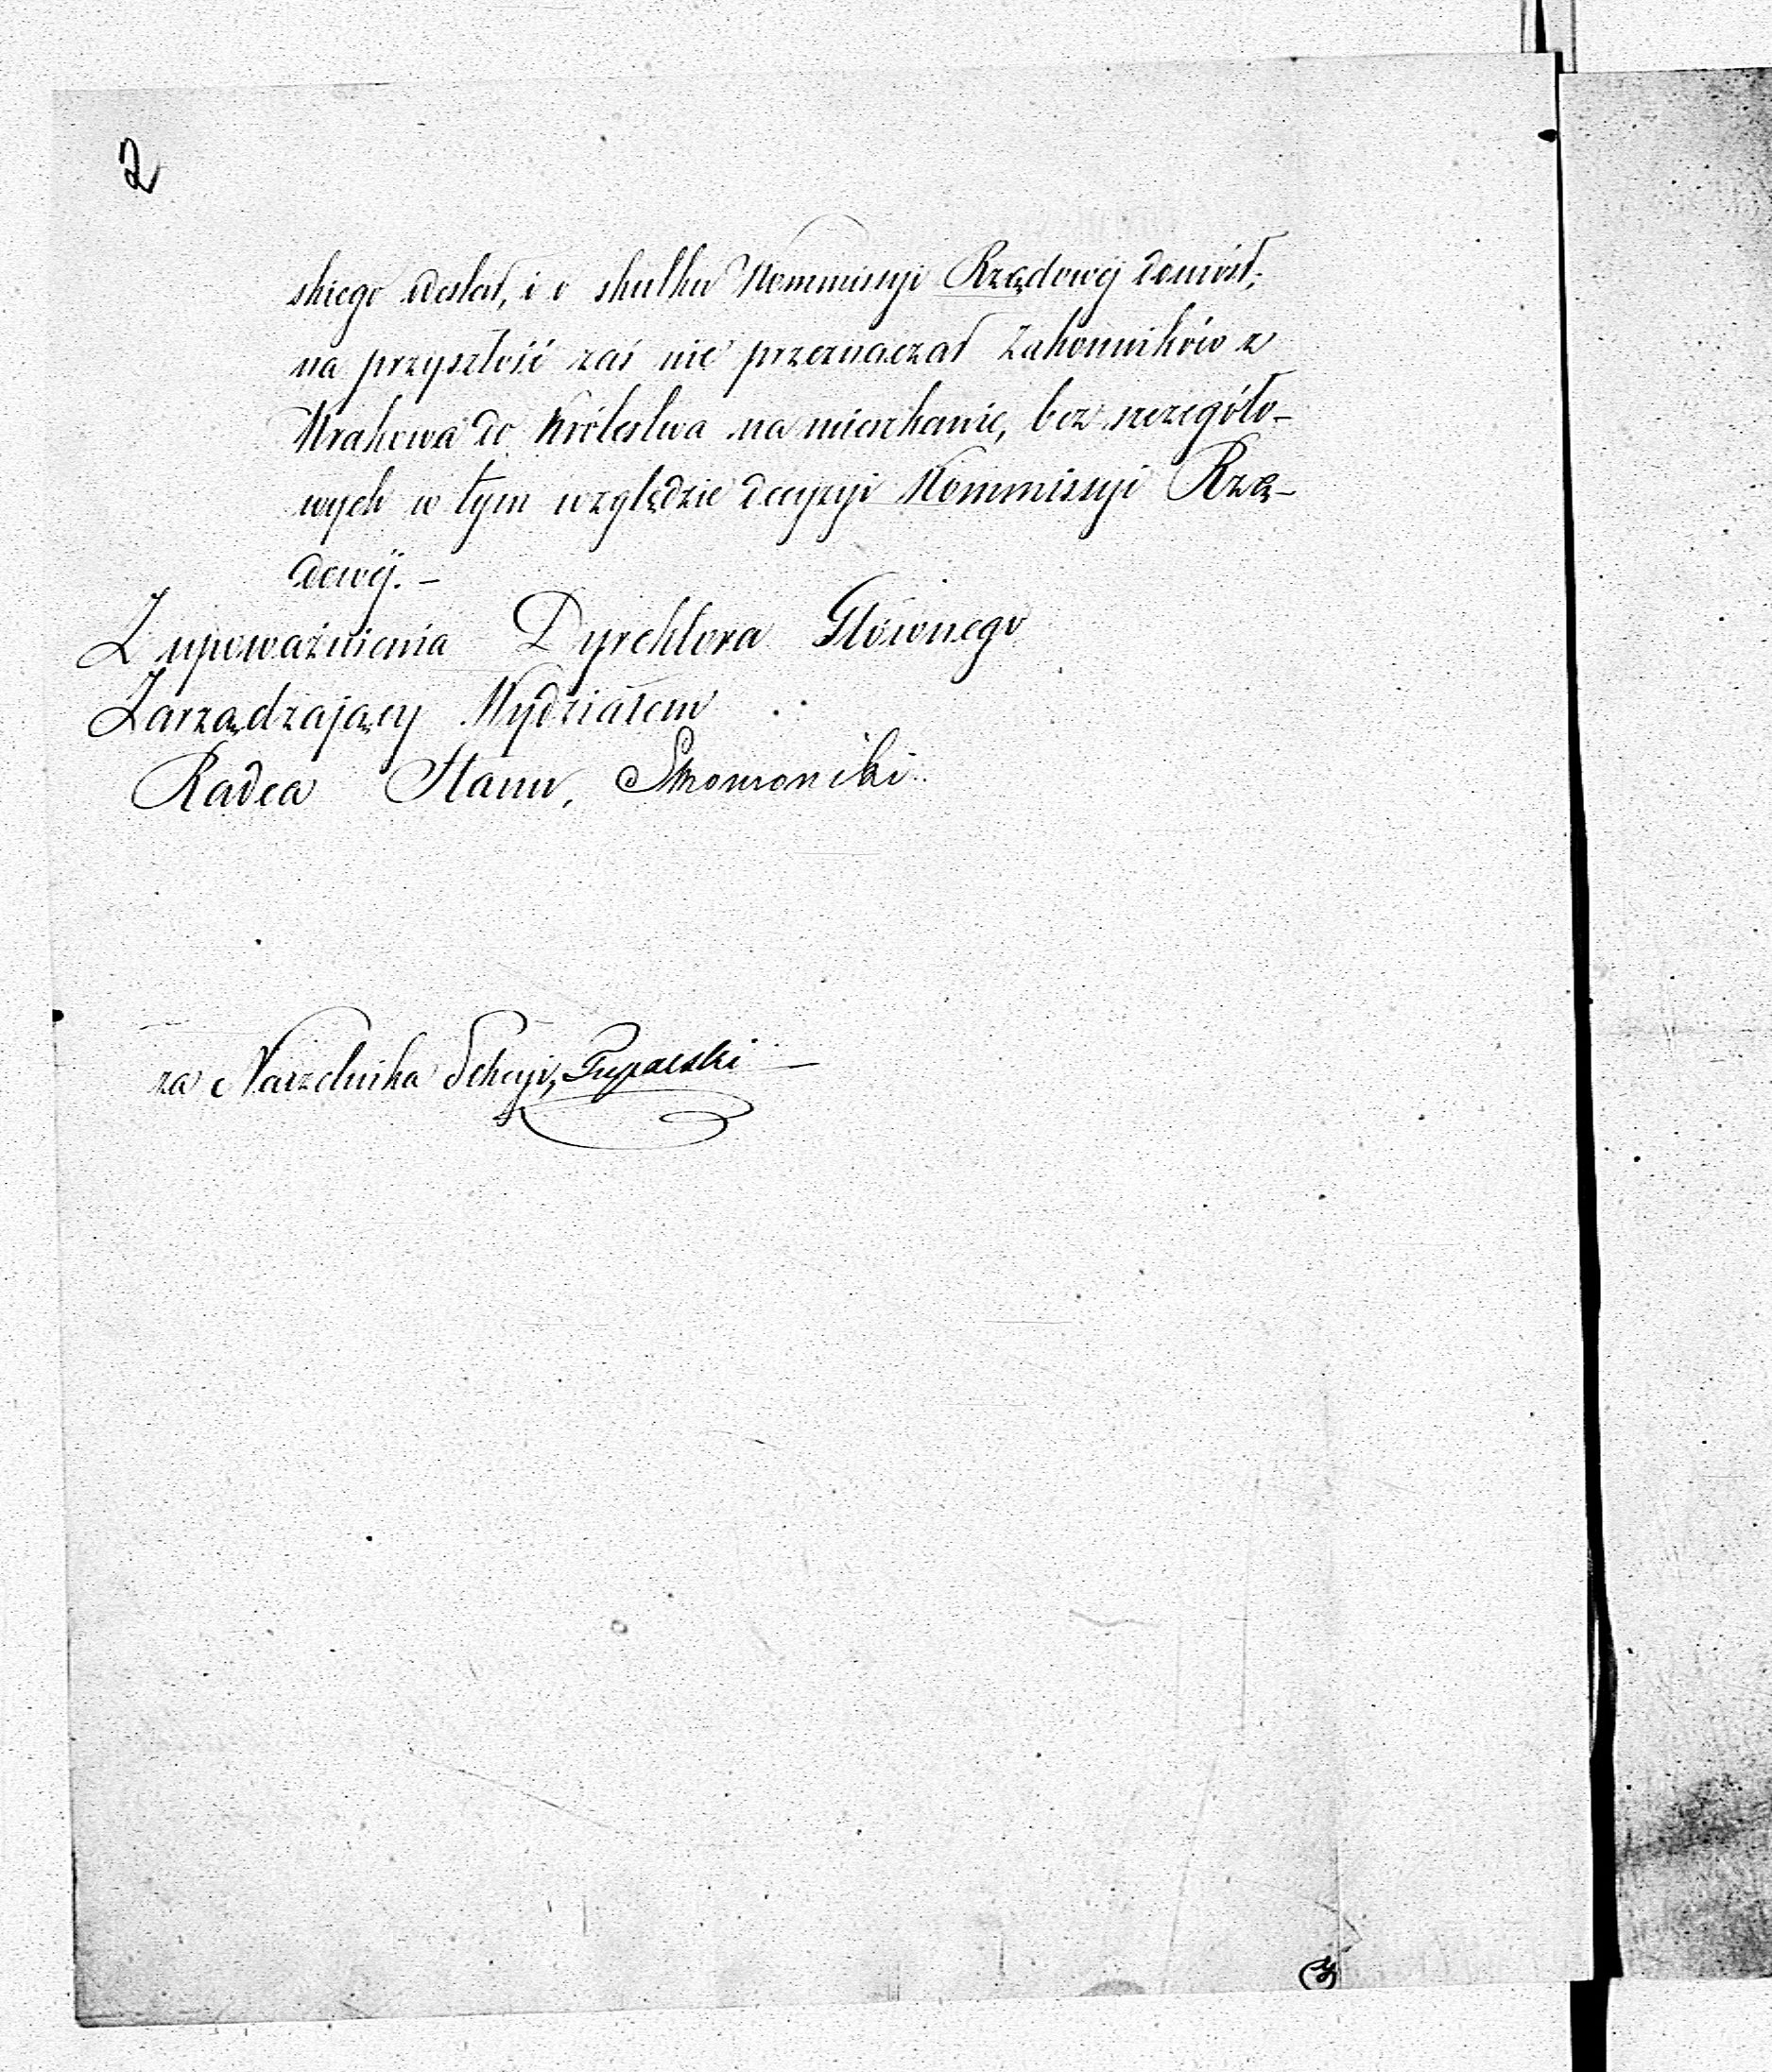 2
skiego odesłał, i o skutku Kommissyi Rządowéj doniósł,
na przyszłość zaś nie przeznaczał Zakonników z
Krakowa do Królestwa na mieszkanie, bez szczegóło-
wych w tym względzie decyzyi Kommissyi Rzą-
dowéj. –
Z upoważnienia Dyrektora Głównego
Zarządzający Wydziałem
Radca Stanu,
za Naczelnika Sekcyi,